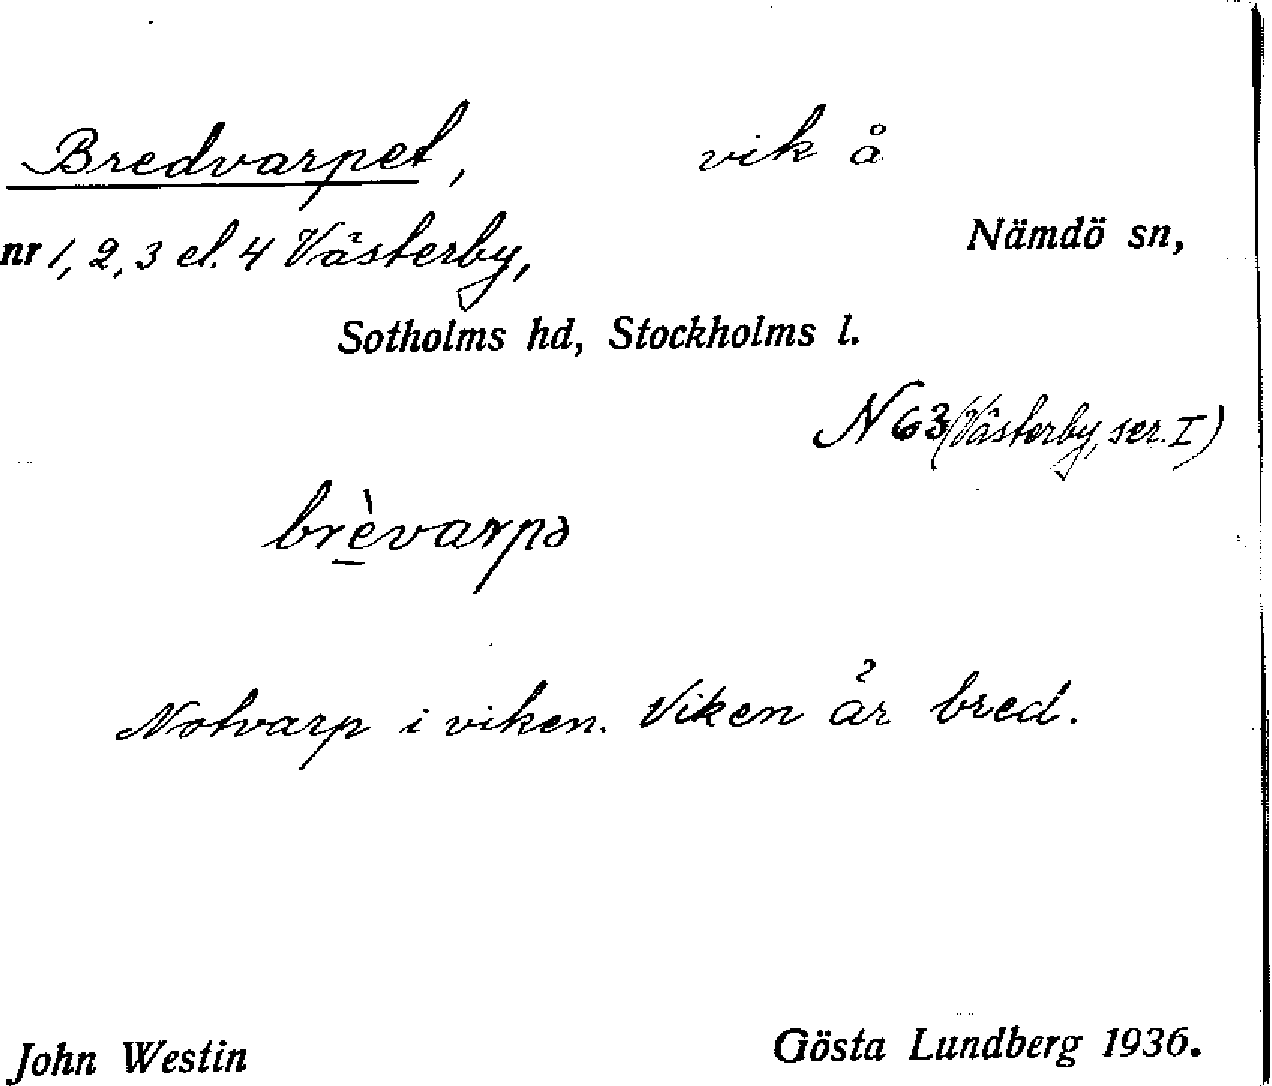 Bredvarpet, vik å
nr 1, 2, 3 el. 4 Västerby, Nämdö sn,
Sotholms hd, Stockholms l.
N 63 (Västerby, ser. I)
brèvarpə
Notvarp i viken. Viken är bred.
John Westin Gösta Lundberg 1936.